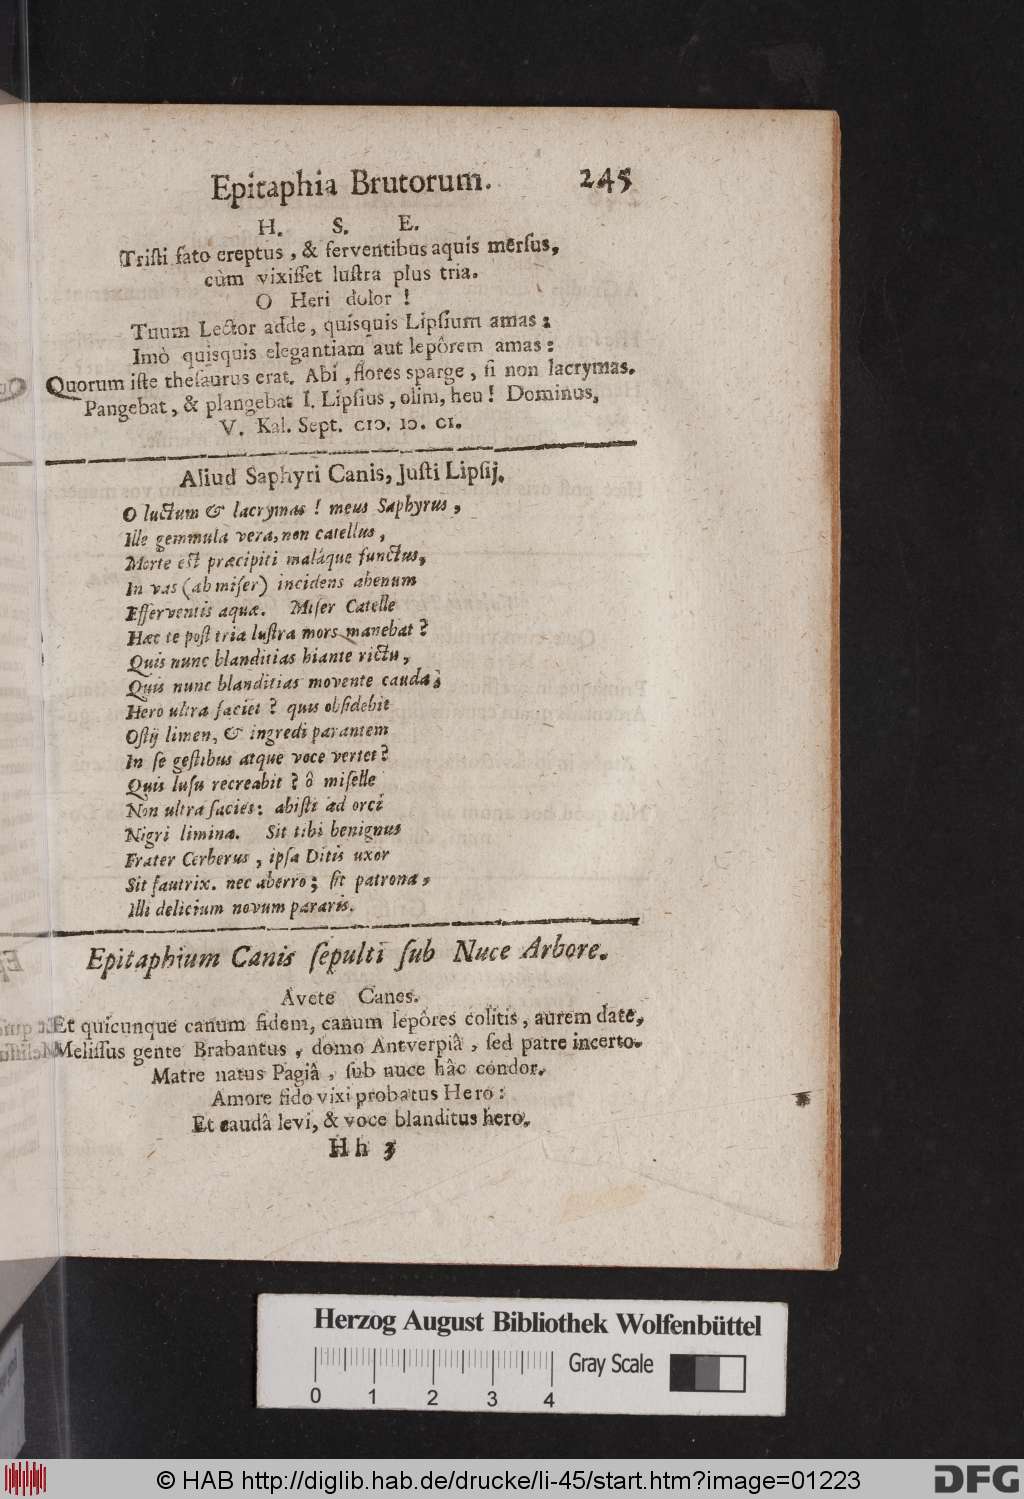 Epitaphia Brutorum. 245
H. S. E.
Tristi fato ereptus, & ferventibus aquis mersus,
cùm vixisset lustra plus tria.
O Heri dolor !
Tuum Lector adde, quisquis Lipsium amas :
Imò quisquis elegantiam aut lepôrem amas :
Quorum iste thesaurus erat. Abi, flores sparge, si non lacrymas.
Pangebat, & plangebat I. Lipsius, olim, heu ! Dominus,
V. Kal. Sept. CIↃ. IↃ. CI.
Aliud Saphyri Canis, Justi Lipsij.
O luctum & lacrymas ! meus Saphyrus,
Ille gemmula vera, non catellus,
Morte est præcipiti maláque functus,
In vas (ah miser) incidens ahenum
Efferventis aquæ. Miser Catelle
Hæc te post tria lustra mors manebat ?
Quis nunc blanditias hiante rictu,
Quis nunc blanditias movente cauda,
Hero ultra faciet ? quis obsidebit
Ostij limen, & ingredi parantem
In se gestibus atque voce vertet ?
Quis lusu recreabit ? ô miselle
Non ultra facies : abisti ad orci
Nigri limina. Sit tibi benignus
Frater Cerberus, ipsa Ditis uxor
Sit fautrix. nec aberro ; sit patrona,
Illi delicium novum pararis.
Epitaphium Canis sepulti sub Nuce Arbore.
Avete Canes.
Et quicunque canum fidem, canum lepôres colitis, aurem date,
Melissus gente Brabantus, domo Antverpiâ, sed patre incerto.
Matre natus Pagiâ, sub nuce hâc condor.
Amore fido vixi probatus Hero :
Et caudâ levi, & voce blanditus hero.
H h 3
Herzog August Bibliothek Wolfenbüttel
Gray Scale
0 1 2 3 4
© HAB http://diglib.hab.de/drucke/li-45/start.htm?image=01223
DFG